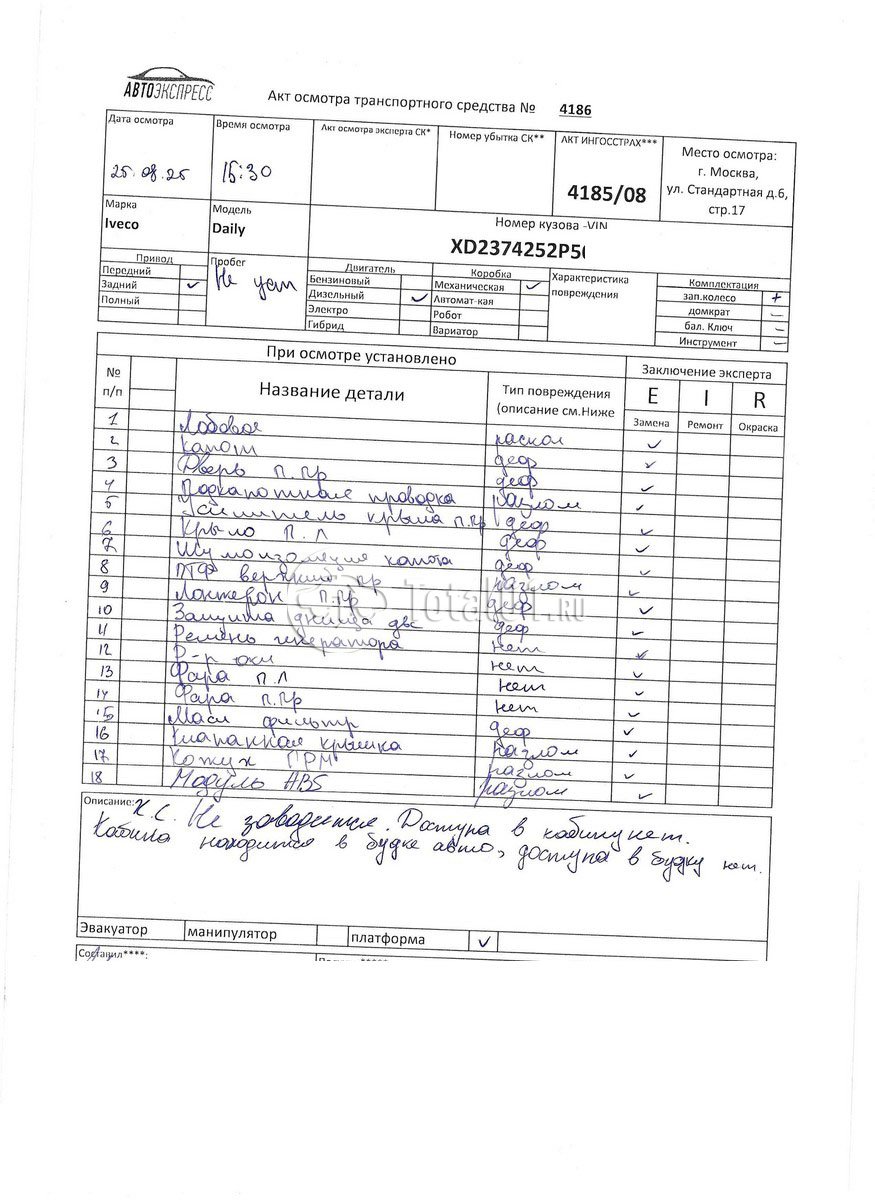 АВТОЭКСПРЕСС
Акт осмотра транспортного средства № 4186
Дата осмотра
25.08.25
Время осмотра
15:30
Акт осмотра эксперта СК*
Номер убытка СК**
АКТ ИНГОССТРАХ***
4185/08
Место осмотра:
г. Москва,
ул. Стандартная д.6,
стр.17
Марка
Iveco
Модель
Daily
Номер кузова -VIN
XD2374252P5
Привод
Передний
Задний ✓
Полный
Пробег
Не уст
Двигатель
Бензиновый
Дизельный ✓
Электро
Гибрид
Коробка
Механическая ✓
Автомат-кая
Робот
Вариатор
Характеристика
повреждения
Комплектация
зап.колесо +
домкрат –
бал. Ключ –
Инструмент –
При осмотре установлено
Заключение эксперта
№
п/п
Название детали
Тип повреждения
(описание см.Ниже
E I R
Замена Ремонт Окраска
1 Лобовое раскол ✓
2 Капот деф ✓
3 Дверь п.пр деф ✓
4 Подкапотная проводка разлом ✓
5 Усилитель крыла п.пр деф ✓
6 Крыло п.л деф ✓
7 Шумоизоляция капота деф ✓
8 ПТФ верхний пр разлом ✓
9 Лонжерон п.пр деф ✓
10 Защита днища двс деф ✓
11 Ремень генератора нет ✓
12 Р-р нет ✓
13 Фара п.л нет ✓
14 Фара п.пр нет ✓
15 Масл фильтр деф ✓
16 Клапанная крышка разлом ✓
17 Кожух ГРМ разлом ✓
18 Модуль ABS разлом ✓
TotalCar.RU
Описание: К.С. Не заводится. Доступа в кабину нет.
Кабина находится в будке авто, доступа в будку нет.
Эвакуатор манипулятор платформа ✓
Составил****: